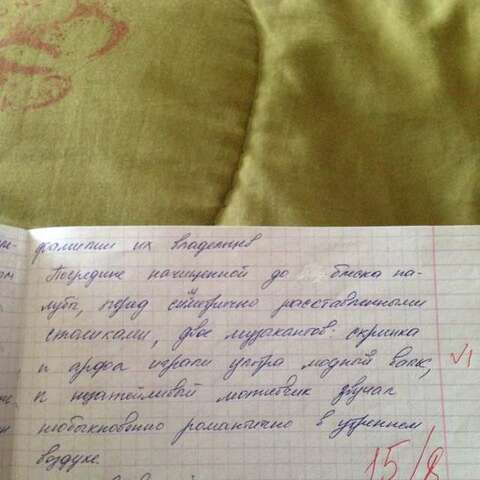 фамилии их владельцев
Посредине начищенной до блеска па-
лубы, перед симетрично расставленными
столиками, двое музыкантов: скрипка
и арфа играли ультра модный вальс,
и незатейливый мотивчик звучал
необыкновенно романтично в утреннем
воздухе.
√1
15/8